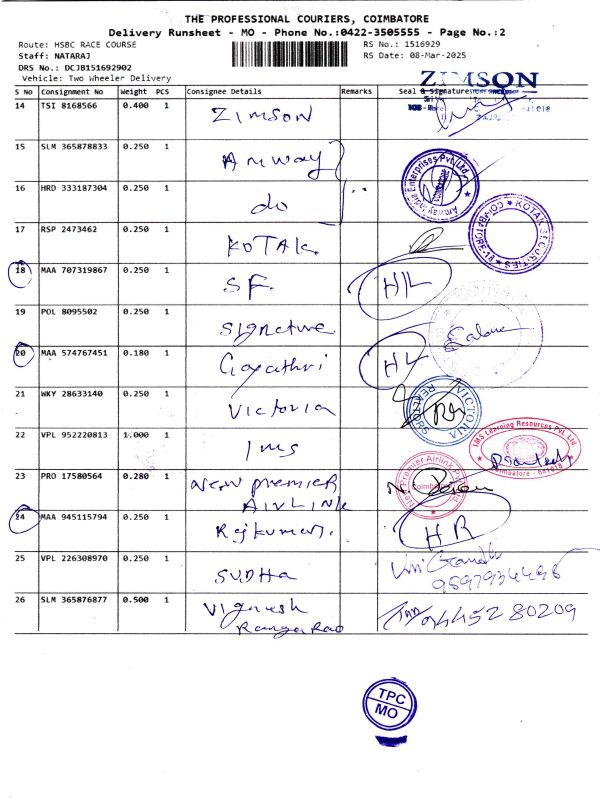 THE PROFESSIONAL COURIERS, COIMBATORE
Delivery Runsheet - MO - Phone No.:0422-3505555 - Page No.:2
Route: HSBC RACE COURSE RS No.: 1516929
Staff: NATARAJ RS Date: 08-Mar-2025
DRS No.: DCJB151692902
Vehicle: Two Wheeler Delivery
ZIMSON
S No Consignment No Weight PCS Consignee Details Remarks Seal & Signature
14 TSI 8168566 0.400 1 ZIMSON
15 SLM 365878833 0.250 1 Amway
Amway India Enterprises Pvt Ltd
16 HRD 333187304 0.250 1 do
17 RSP 2473462 0.250 1 KOTAK
KOTAK SECURITIES
18 MAA 707319867 0.250 1 SF. H/L
19 POL 8095502 0.250 1 Signature
20 MAA 574767451 0.180 1 Gayathri HL
21 WKY 28633140 0.250 1 Victoria
VICTORIA REALTORS
22 VPL 952220813 1.000 1 Ims
IMS Learning Resources Pvt. Ltd
Coimbatore
23 PRO 17580564 0.280 1 New Premier
AIRLINK
Premier Airlink
Coimbatore
24 MAA 945115794 0.250 1 Rajkumar. HR
25 VPL 226308970 0.250 1 SUDHA
26 SLM 365876877 0.500 1 Vignesh 9445280209
Ranga Rao
TPC
MO